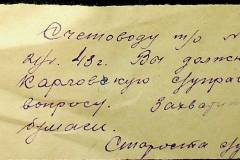 Счетоводу т/о
43 г. Вы долж
Карловскую
вопросу. Захвати
бумаги.
Староста